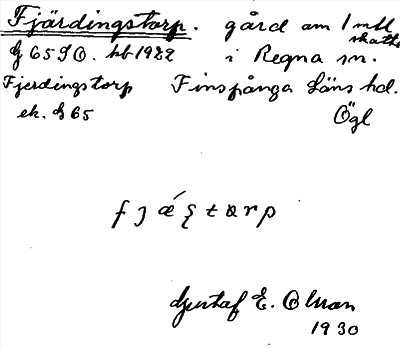 Fjärdingstorp. gård om 1 mtl
skatte
G 65 SO. hb 1922 i Regna sn.
Fjerdingstorp Finspånga läns hd.
ek. G 65 Ögl
Gustaf E. Olsson
1930